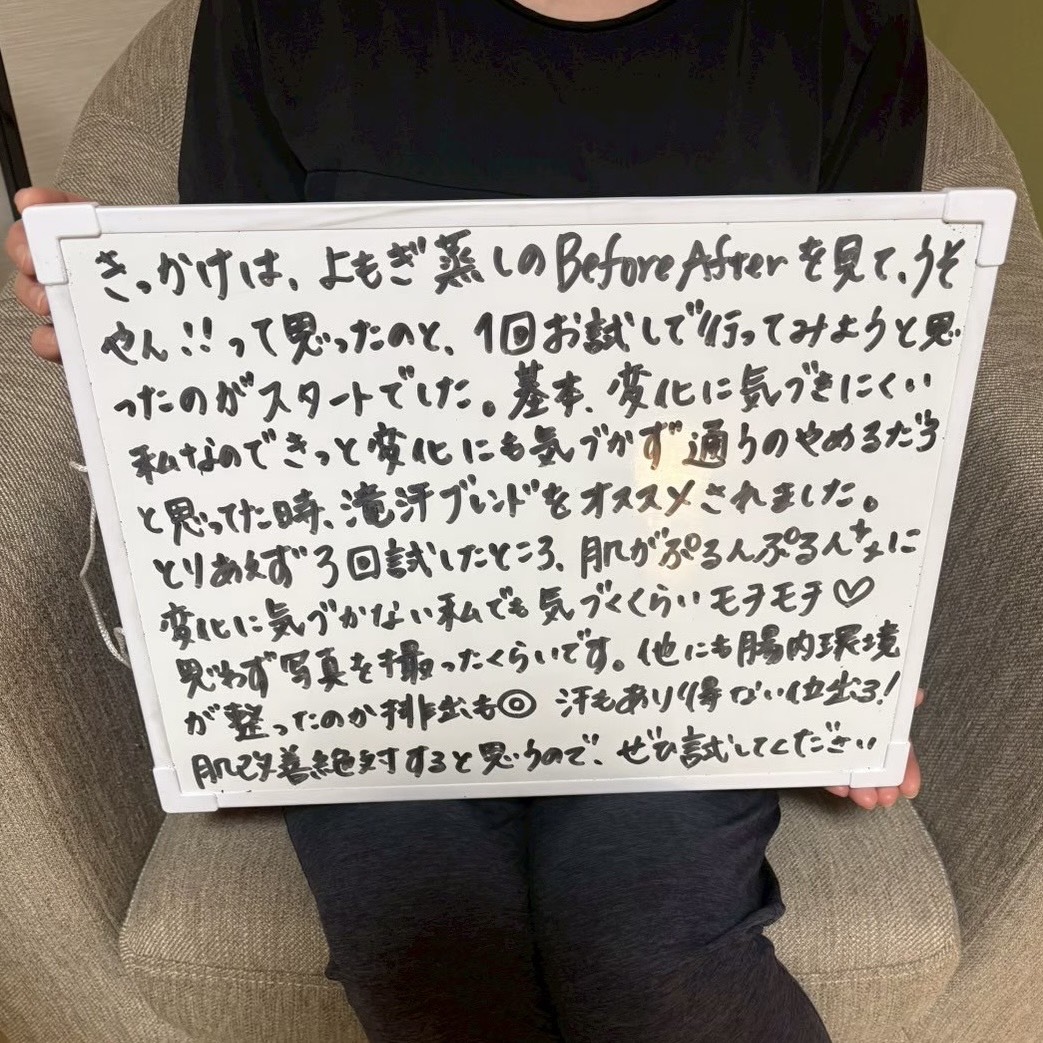 きっかけは、よもぎ蒸しのBefore Afterを見て、うそ
やん!!って思ったのと、1回お試しで行ってみようと思
ったのがスタートでした。基本、変化に気づきにくい
私なのできっと変化にも気づかず通うのやめるだろう
と思ってた時、滝汗ブレンドをオススメされました。
とりあえず3回試したところ、肌がぷるんぷるんに
変化に気づかない私でも気づくくらいモチモチ♡
思わず写真を撮ったくらいです。他にも腸内環境
が整ったのか排出も◎ 汗もあり得ない位出る!
肌改善絶対すると思うので、ぜひ試してください